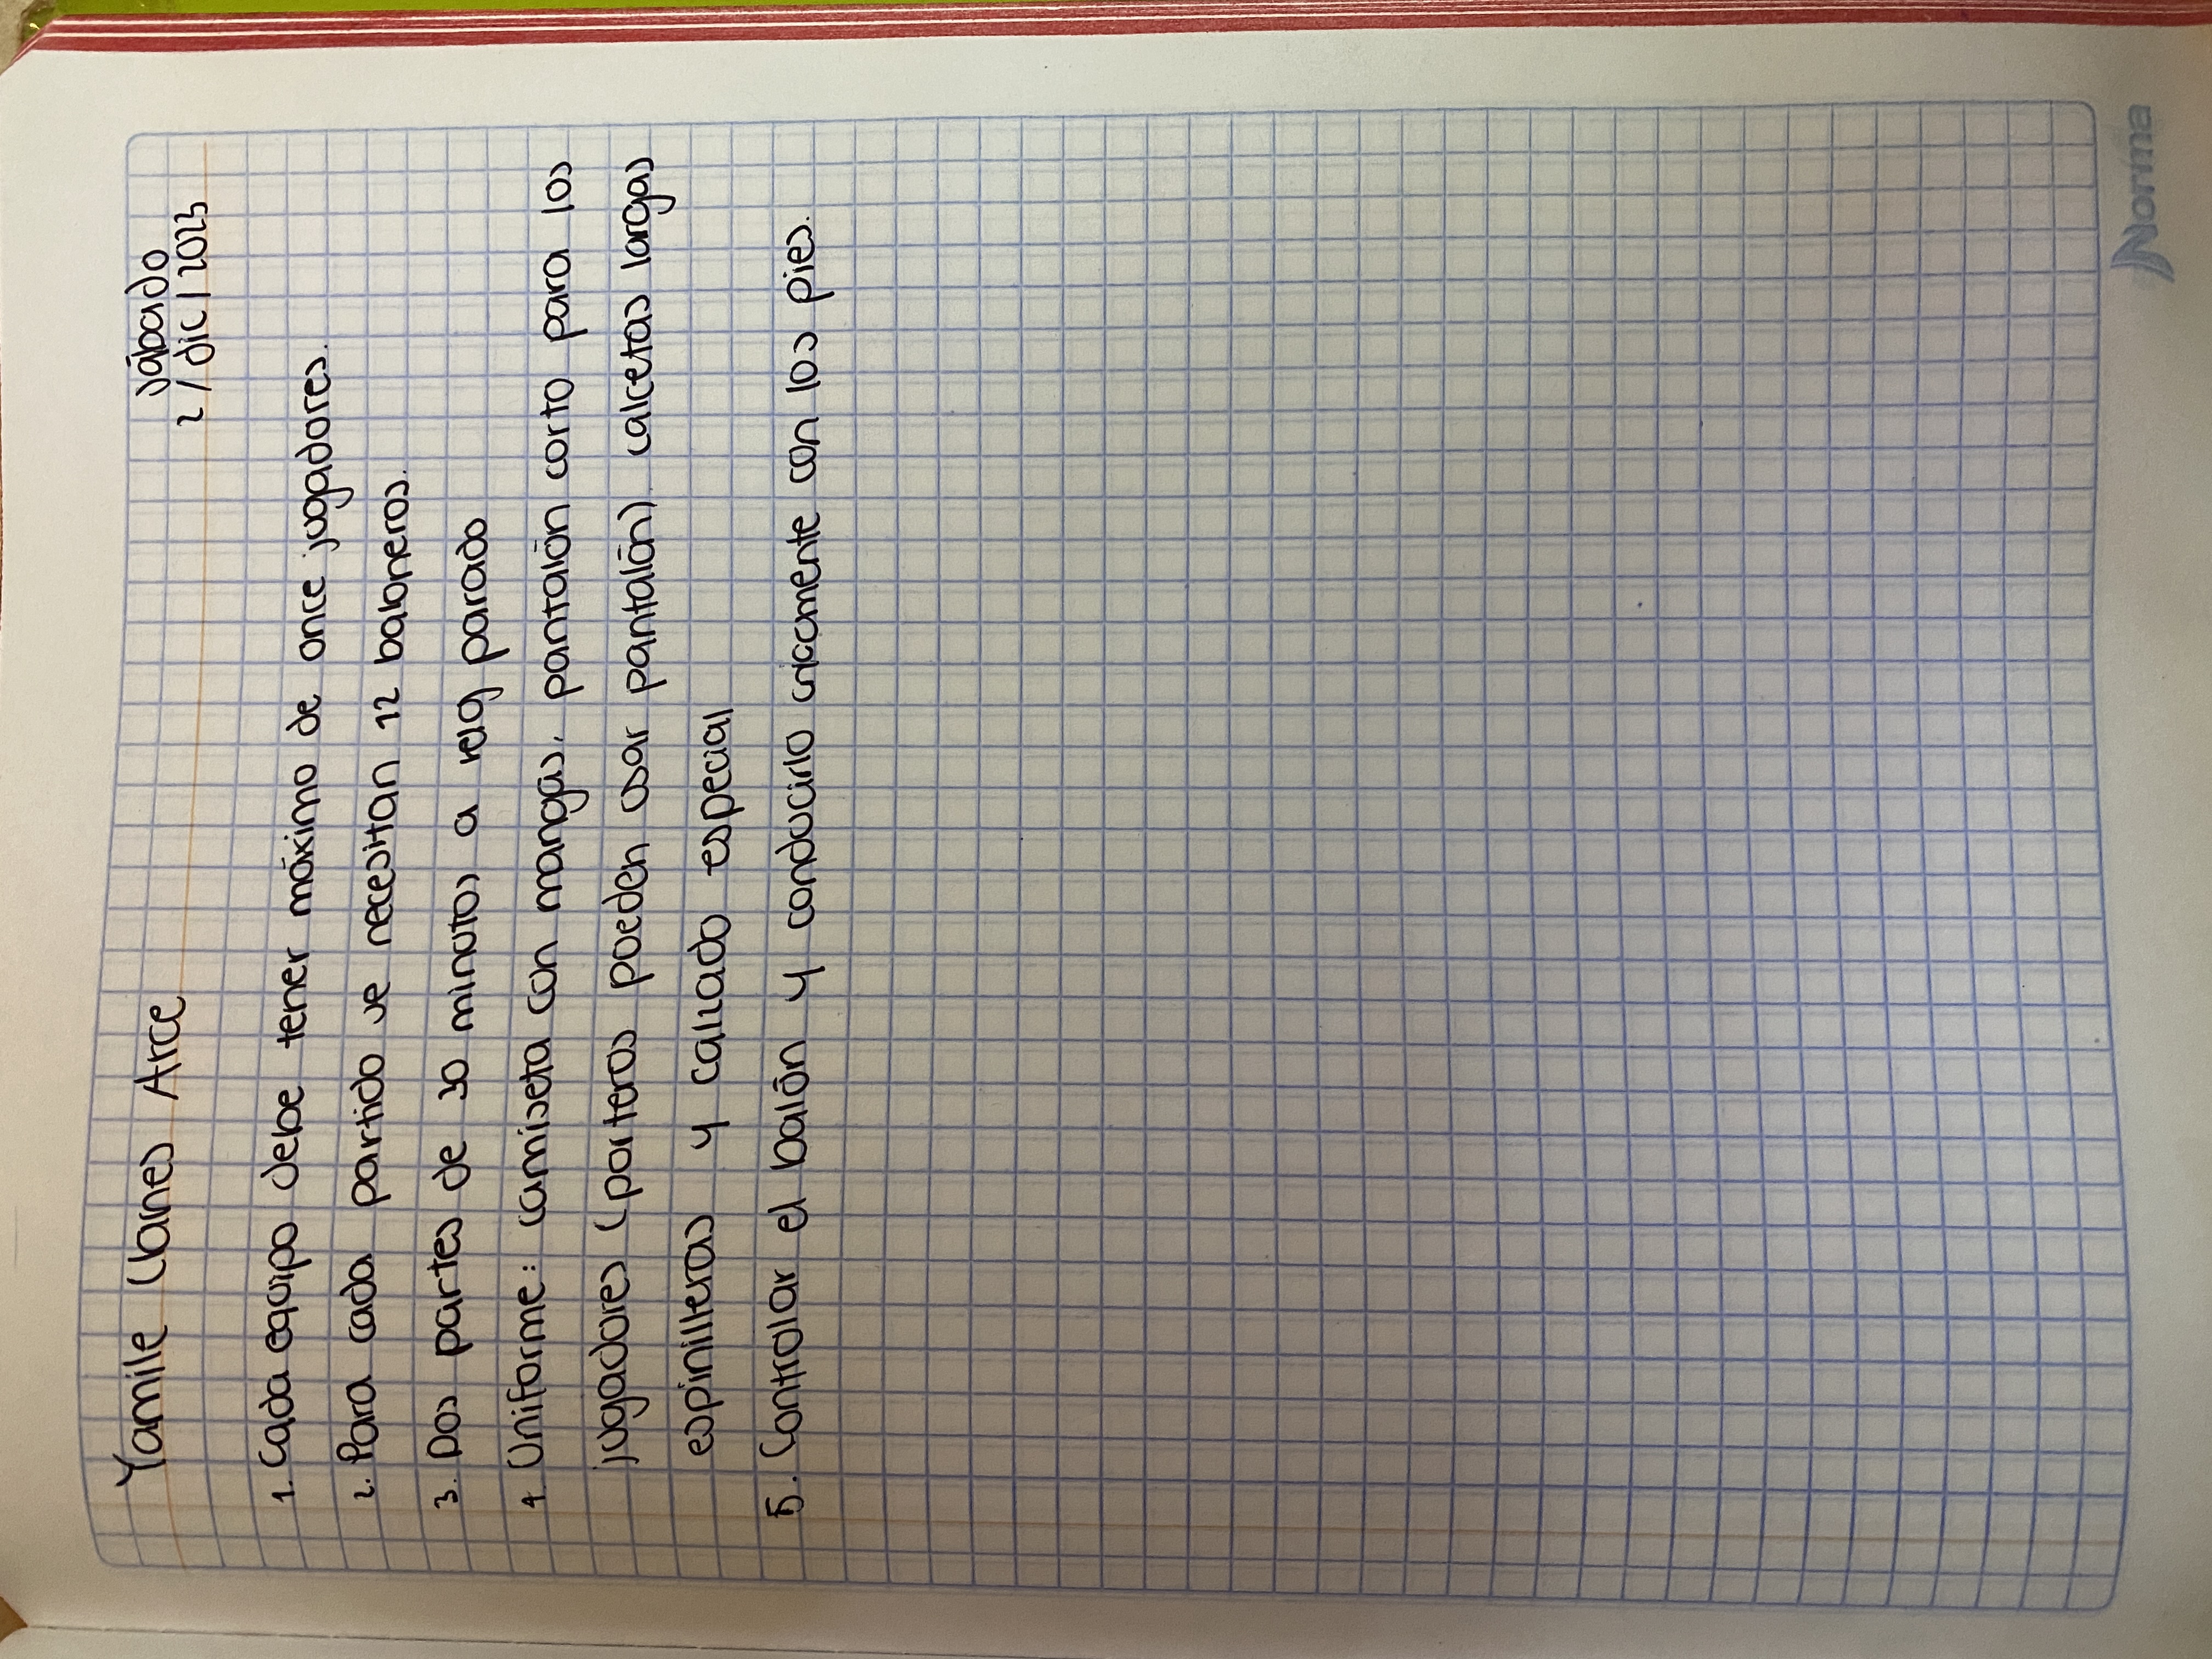 Yamille Llanes Arce
sábado
2/dic/2023
1. Cada equipo debe tener máximo de once jugadores.
2. Para cada partido se necesitan 12 baloneros.
3. Dos partes de 30 minutos a reloj parado
4. Uniforme: camiseta con mangas, pantalón corto para los
jugadores (porteros pueden usar pantalón) calcetas largas
espinilleras y calzado especial
5. Controlar el balón y conducirlo únicamente con los pies.
Norma